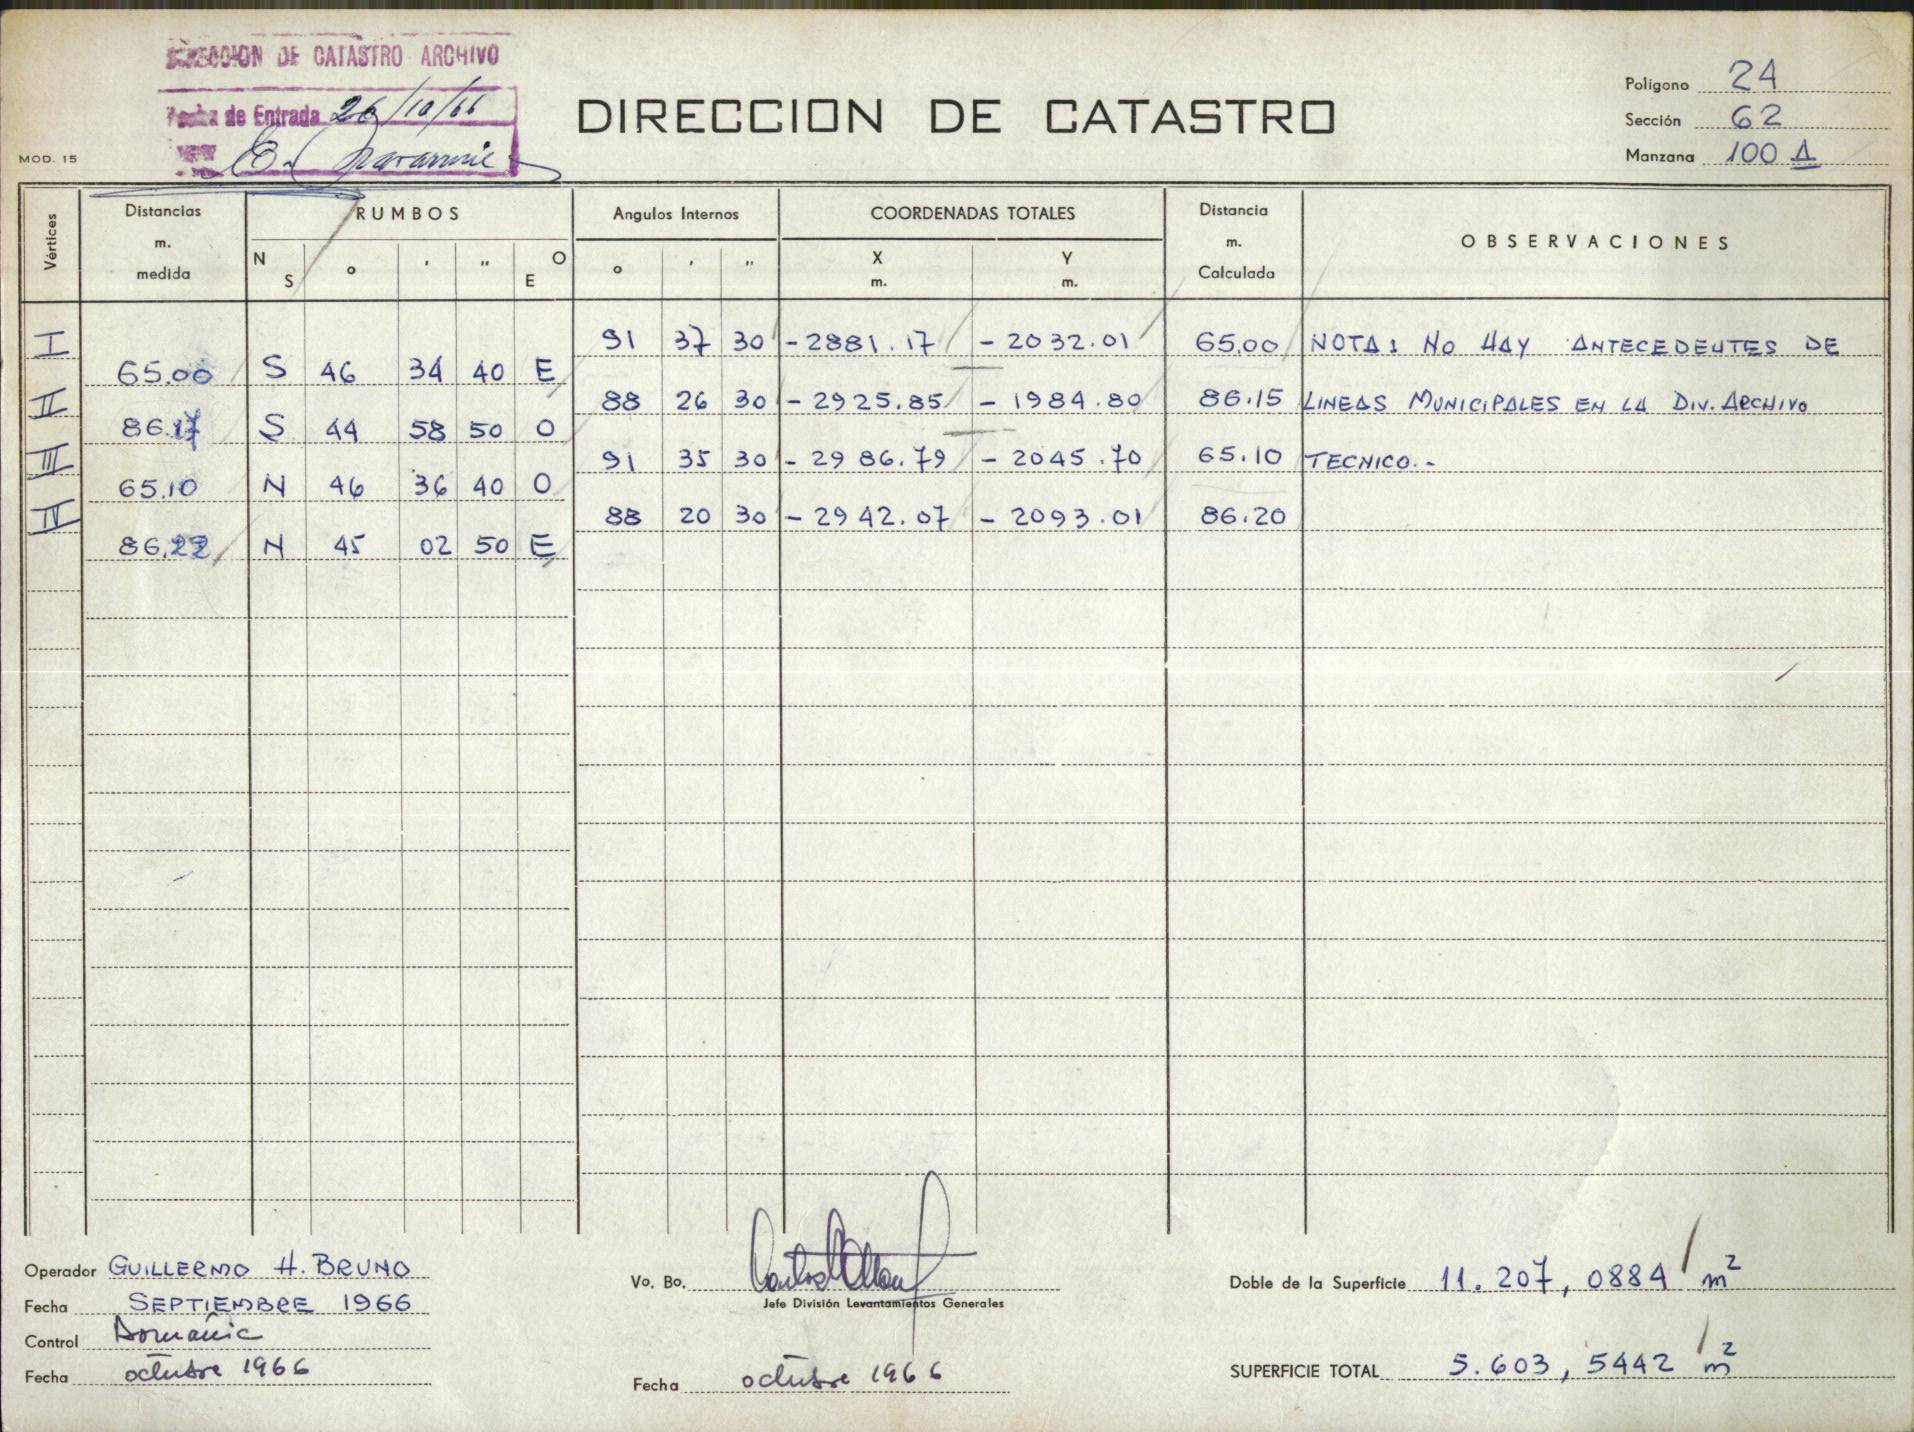 DIRECCION DE CATASTRO ARCHIVO
Fecha de Entrada 26/10/66
MOD. 15
DIRECCION DE CATASTRO
Polígono 24
Sección 62
Manzana 100 A
Vértices
Distancias m. medida
RUMBOS
N S ° ' " O E
Angulos Internos
° ' "
COORDENADAS TOTALES
X m. Y m.
Distancia m. Calculada
OBSERVACIONES
I 91 37 30 -2881.17 -2032.01 65.00 NOTA: NO HAY ANTECEDEUTES DE
65.00 S 46 34 40 E
II 88 26 30 -2925.85 -1984.80 86.15 LINEAS MUNICIPALES EN LA DIV. ARCHIVO
86.17 S 44 58 50 O
III 91 35 30 -2986.79 -2045.70 65.10 TECNICO.-
65.10 N 46 36 40 O
IV 88 20 30 -2942.07 -2093.01 86.20
86.22 N 45 02 50 E
Operador GUILLERMO H. BRUNO
Fecha SEPTIEMBRE 1966
Control
Fecha octubre 1966
Vo. Bo.
Jefe División Levantamientos Generales
Fecha octubre 1966
Doble de la Superficie 11.207,0884 m²
SUPERFICIE TOTAL 5.603,5442 m²